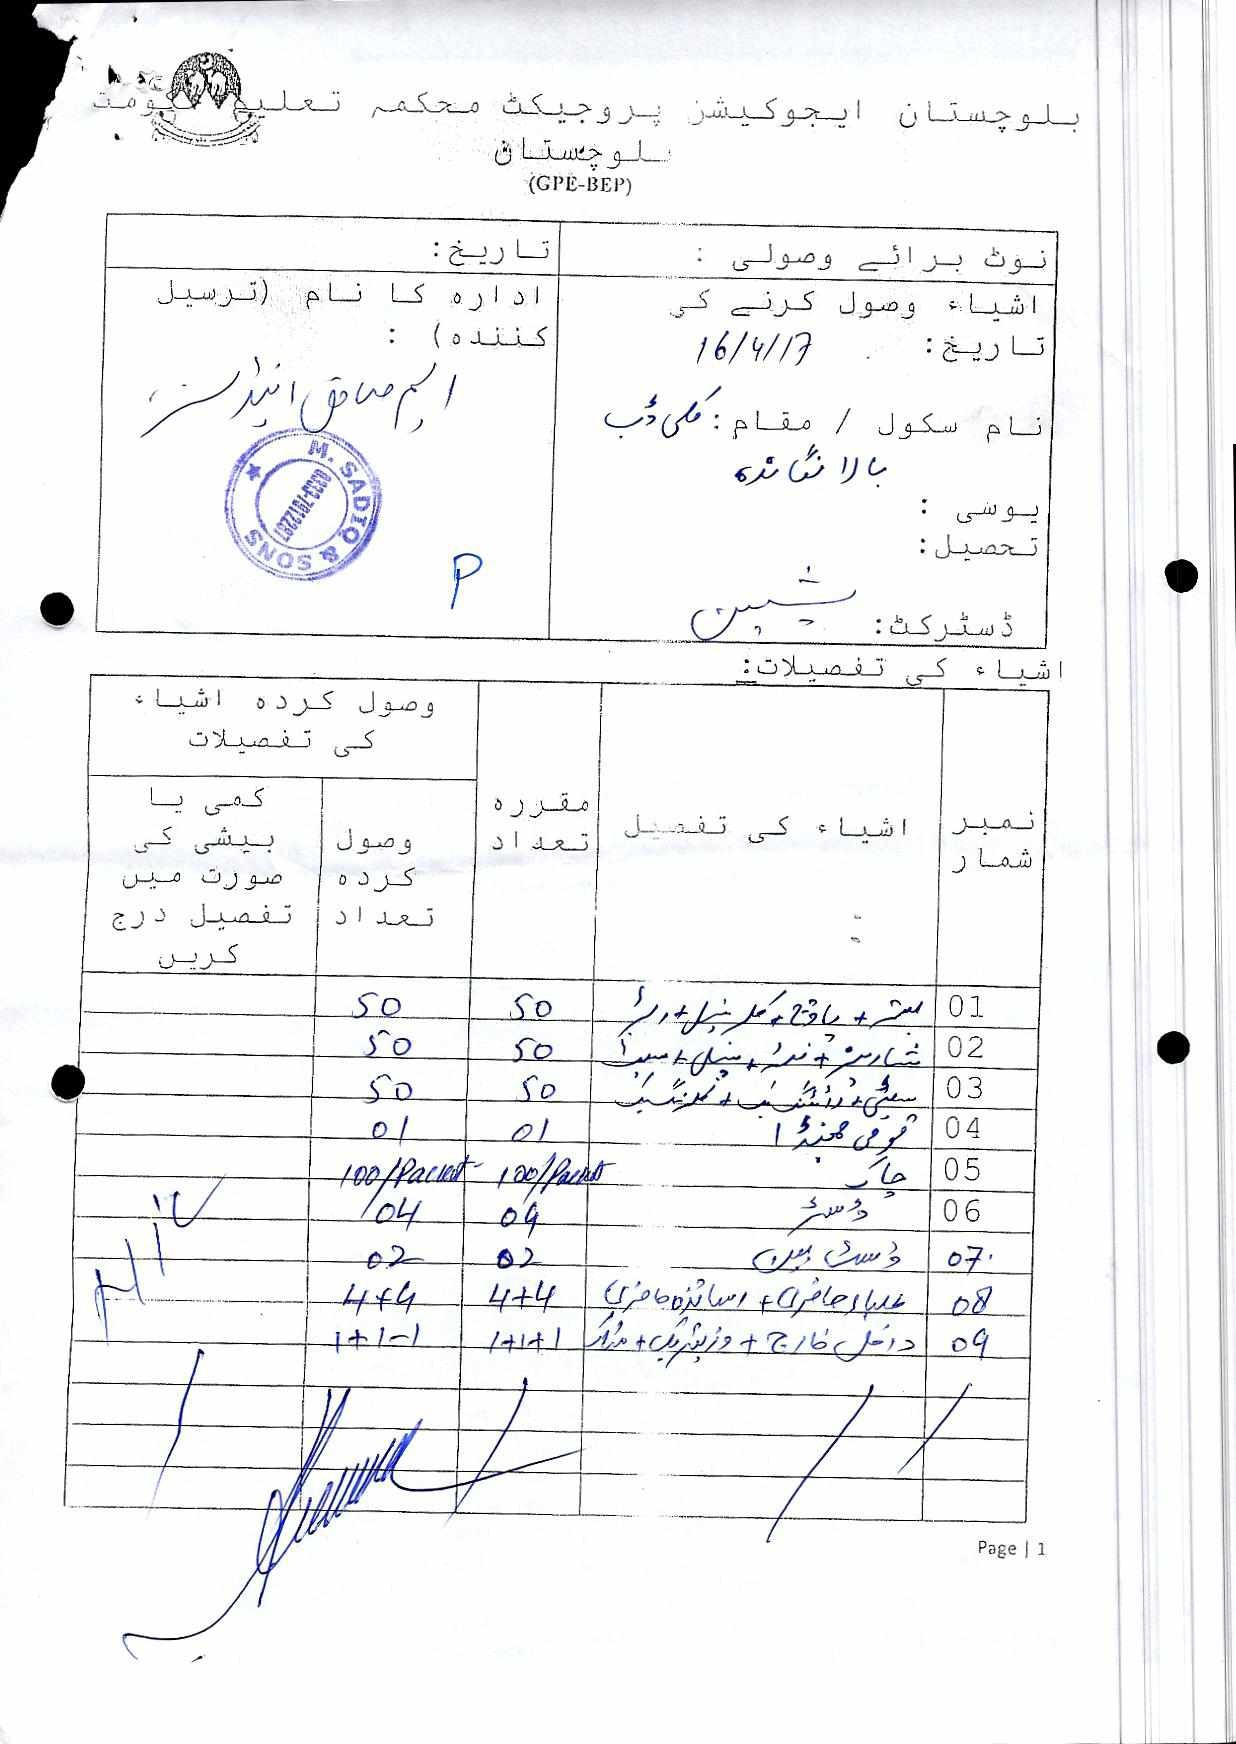 بلوچستان ایجوکیشنز پروجیکٹ محکمہ تعلیم حکومت
بلوچستان
(GPE-BEP)
نوٹ برائے وصولی :
تاریخ:
اشیاء وصول کرنے کی
تاریخ: 16/4/17
نام سکول / مقام: کلی
یوسی :
تحصیل:
ڈسٹرکٹ: پشین
ادارہ کا نام (ترسیل
کنندہ) :
ایم صادق اینڈ سنز
M. SADIQ & SONS
P
اشیاء کی تفصیلات:
نمبر شمار
اشیاء کی تفصیل
مقررہ تعداد
وصول کردہ اشیاء کی تفصیلات
وصول کردہ تعداد
کمی یا بیشی کی صورت میں تفصیل درج کریں
01 50 50
02 شارپنر + 50 50
03 50 50
04 قومی جھنڈا 01 01
05 چاک 100/Packet 100/Packet
06 ڈسٹر 04 04
07 ڈسٹ بین 02 02
08 طلباء حاضری + اساتذہ حاضری 4+4 4+4
09 داخل خارج + 1+1+1 1+1-1
Page | 1